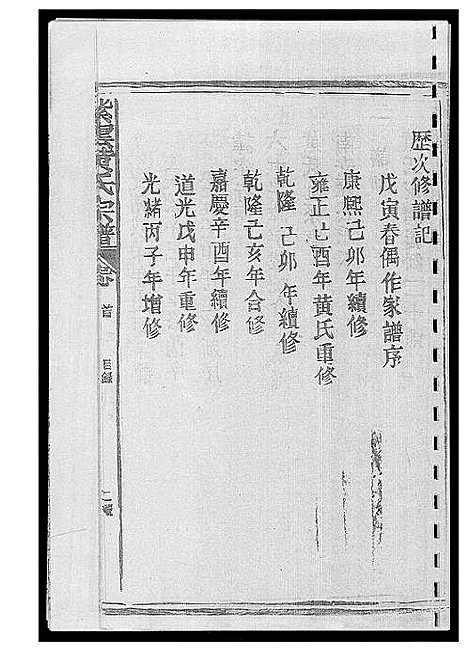 歷次修譜記
戊寅春偶作家譜序
康熙己卯年續修
雍正己酉年黃氏重修
乾隆己卯年續修
乾隆己亥年合修
嘉慶辛酉年續修
道光戊申年重修
光緒丙子年增修
黃氏宗譜
首
目錄
二